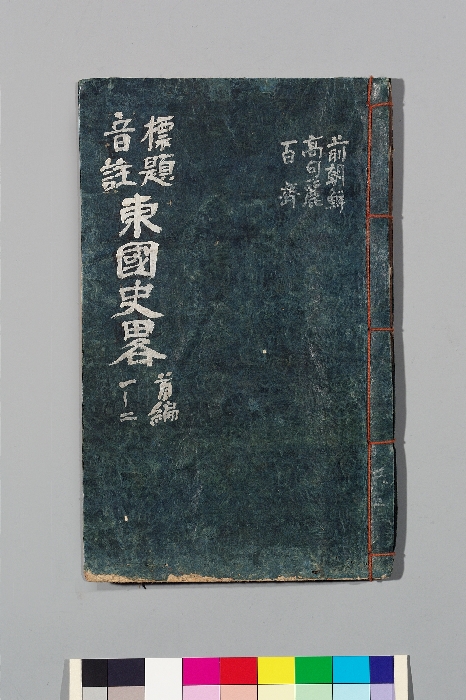 前朝鮮
高句麗
百濟
標題
音註
東國史畧
首編
一ー二